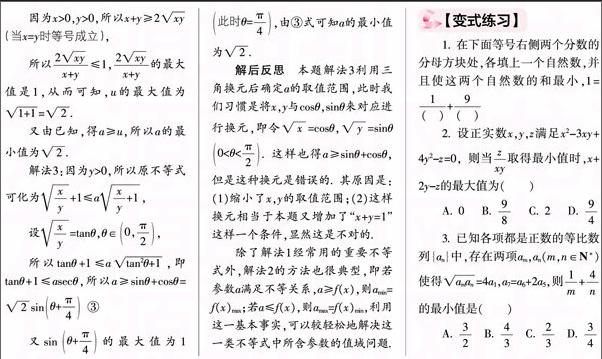 因为x>0,y>0,所以x+y≥2√xy
(当x=y时等号成立),
所以 2√xy/(x+y) ≤1, 2√xy/(x+y) 的最大
值是1,从而可知,u的最大值为
√1+1=√2.
又由已知,得a≥u,所以a的最
小值为√2.
解法3:因为y>0,所以原不等式
可化为√(x/y)+1≤a√(x/y+1),
设√(x/y)=tanθ,θ∈(0,π/2),
所以tanθ+1≤a√(tan²θ+1),即
tanθ+1≤asecθ,所以a≥sinθ+cosθ=
√2 sin(θ+π/4) ③
又sin(θ+π/4)的最大值为1
(此时θ=π/4),由③式可知a的最小值
为√2.
解后反思 本题解法3利用三
角换元后确定a的取值范围,此时我
们习惯是将x,y与cosθ,sinθ来对应进
行换元,即令√x=cosθ,√y=sinθ
(0<θ<π/2). 这样也得a≥sinθ+cosθ,
但是这种换元是错误的. 其原因是:
(1)缩小了x,y的取值范围;(2)这样
换元相当于本题又增加了“x+y=1”
这样一个条件,显然这是不对的.
除了解法1经常用的重要不等
式外,解法2的方法也很典型,即若
参数a满足不等关系,a≥f(x),则amin=
f(x)max;若a≤f(x),则amax=f(x)min,利用
这一基本事实,可以较轻松地解决这
一类不等式中所含参数的值域问题.
【变式练习】
1. 在下面等号右侧两个分数的
分母方块处,各填上一个自然数,并
且使这两个自然数的和最小,1=
1/( )+9/( )
2. 设正实数x,y,z满足x²-3xy+
4y²-z=0, 则当z/xy取得最小值时,x+
2y-z的最大值为( )
A. 0 B. 9/8 C. 2 D. 9/4
3. 已知各项都是正数的等比数
列{an}中,存在两项am,an(m,n∈N*)
使得√aman=4a1,a7=a6+2a5,则1/m+4/n
的最小值是( )
A. 3/2 B. 4/3 C. 2/3 D. 3/4